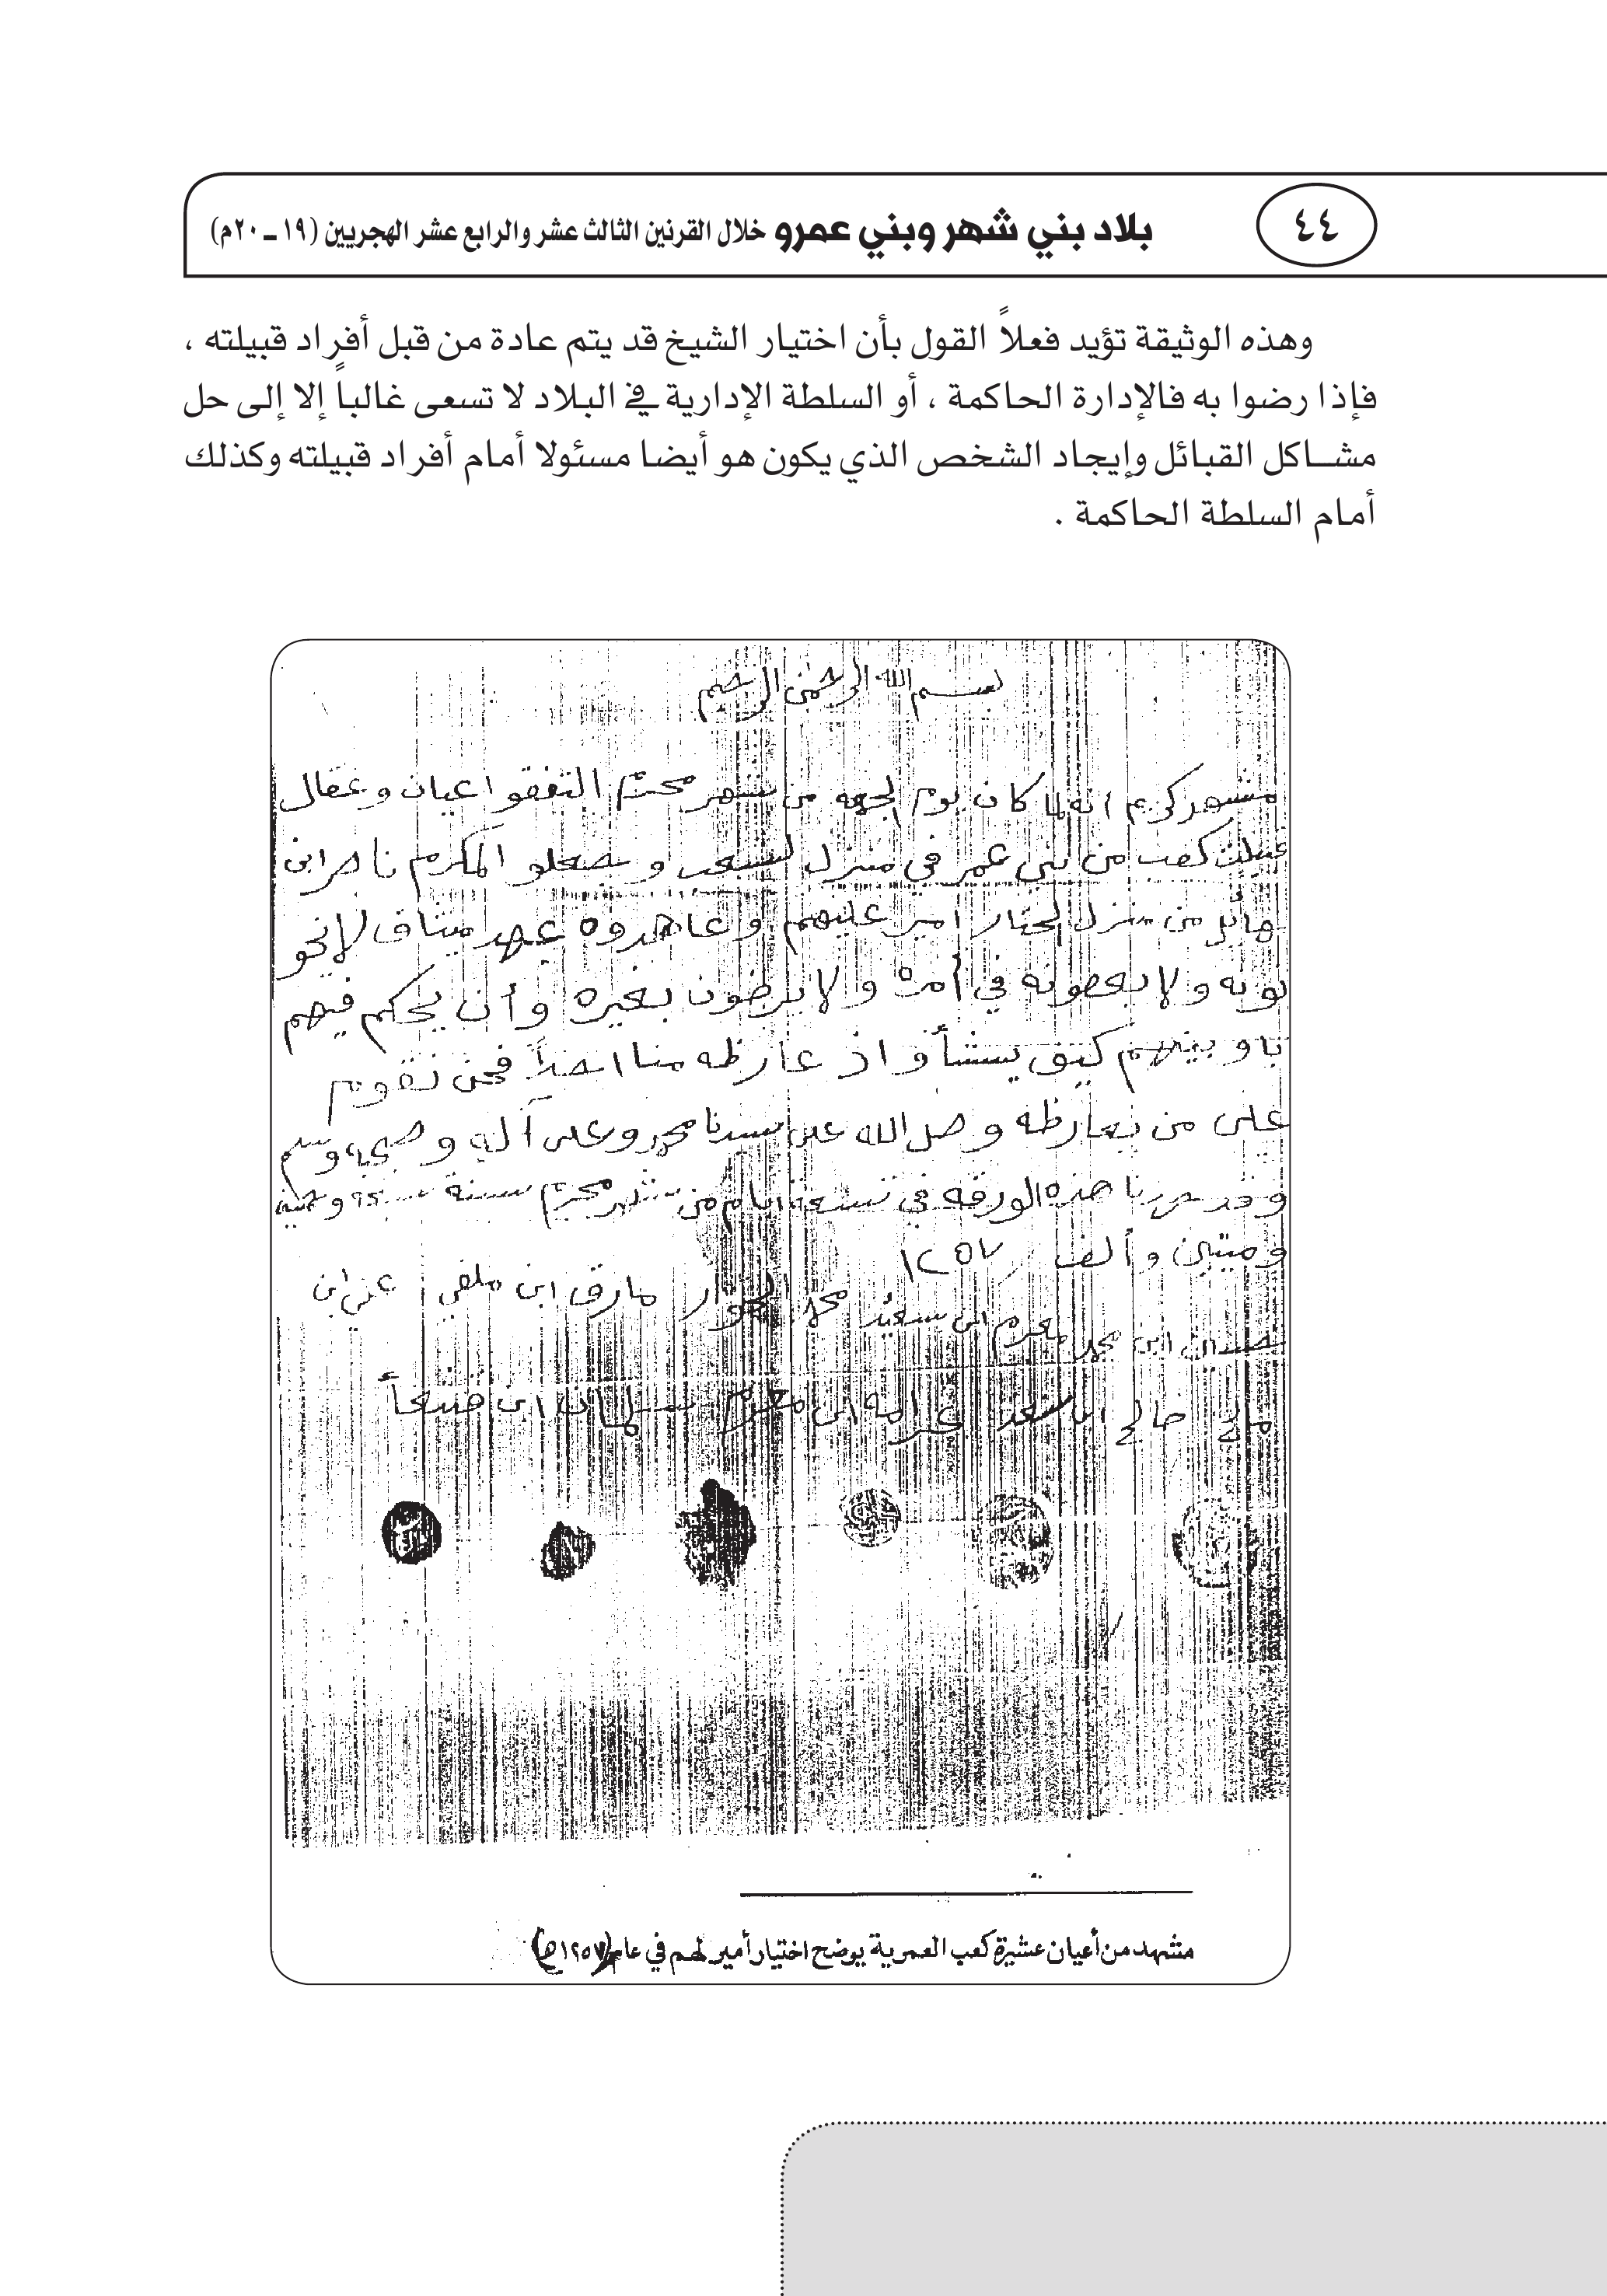 ٤٤
بلاد بني شهر وبني عمرو خلال القرنين الثالث عشر والرابع عشر الهجريين (١٩ ـ ٢٠م)
وهذه الوثيقة تؤيد فعلاً القول بأن اختيار الشيخ قد يتم عادة من قبل أفراد قبيلته ،
فإذا رضوا به فالإدارة الحاكمة ، أو السلطة الإدارية في البلاد لا تسعى غالباً إلا إلى حل
مشــاكل القبائل وإيجاد الشخص الذي يكون هو أيضا مسئولا أمام أفراد قبيلته وكذلك
أمام السلطة الحاكمة .
بسم الله الرحمن الرحيم
مشهد كريم انه لما كان يوم الجمعه من شهر محرم التفقو اعيان وعقال
كعب من بني عمر في منزل لسعب و المكرم ناصر ابن
هائل من منزل امير عليهم وعاهدوه عهد ميثاق لا يخو
نونه ولا يعصونه في أمره ولا يرضون بغيره وأن يحكم فيهم
كيف يشأ واذ عارظه منا احداً فحن نقوم
على من يعارظه وصل الله على سيدنا محمد وعلى آله وصحبه وسلم
وقد حررنا هذه الورقه في تسعة ايام من شهر محرم سنة سبعه وخمسين
وميتين وألف ١٢٥٧
ابن محمد محرم ابن سعيد محمد مارق ابن ملفي علي ابن
صالح ابن سعد ابن ابن
مشهد من أعيان عشيرة كعب العمرية يوضح اختيار أمير لهم في عام (١٢٥٧هـ)